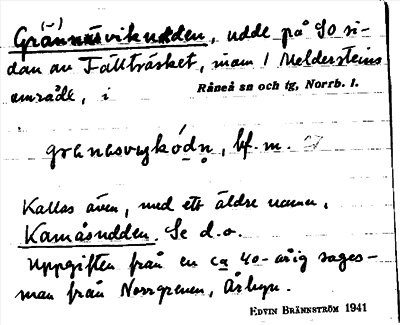 (-)
Grannäsviksudden, udde på SO si-
dan av Fällträsket, inom Meldersteins
område, i Råneå sn och tg, Norrb. l.
granasvɩkódn, bf. m.
Kallas även, med ett äldre namn,
Kamåsudden. Se d.o.
Uppgiften från en ca 40-årig sages-
man från Norrgrenen, Årbyn.
EDVIN BRÄNNSTRÖM 1941